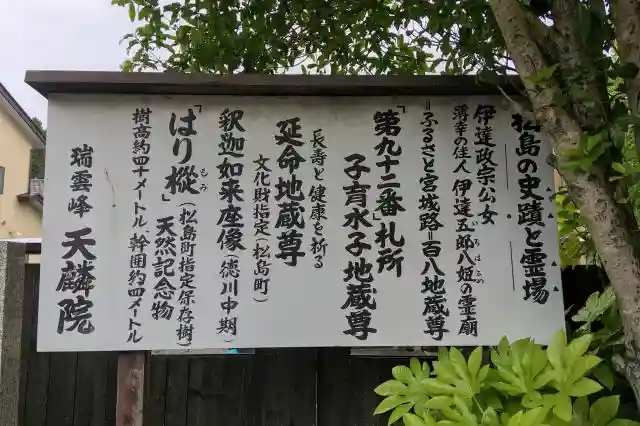 松島の史蹟と霊場
伊達政宗公女
薄幸の佳人 伊達五郎八姫の霊廟
いろはひめ
=ふるさと宮城路=百八地蔵尊
「第九十二番」札所
子育水子地蔵尊
長寿と健康を祈る
延命地蔵尊
文化財指定(松島町)
釈迦如来座像(徳川中期)
「はり樅」天然記念物
もみ
(松島町指定保存樹)
樹高約四十メートル、幹囲約四メートル
瑞雲峰 天麟院